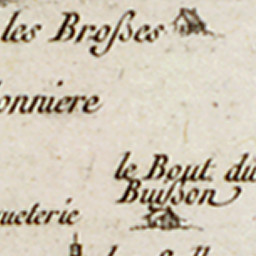 les Broſses
onniere
le Bout du
Buiſson
ueterie